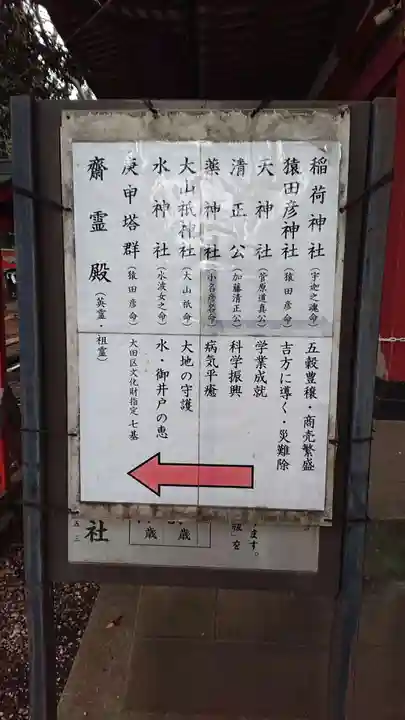 稲荷神社(宇迦之魂命)五穀豊穣・商売繁盛
猿田彦神社(猿田彦命)吉方に導く・災難除
天神社(菅原道真公)学業成就
清正公(加藤清正公)科学振興
薬神社(小名彦名命)病気平癒
大山祇神社(大山祇命)大地の守護
水神社(水波女之命)水・御井戸の恵
庚申塔群(猿田彦命)大田区文化財指定 七基
齋霊殿(英霊・祖霊)
ます。
社
歳
歳